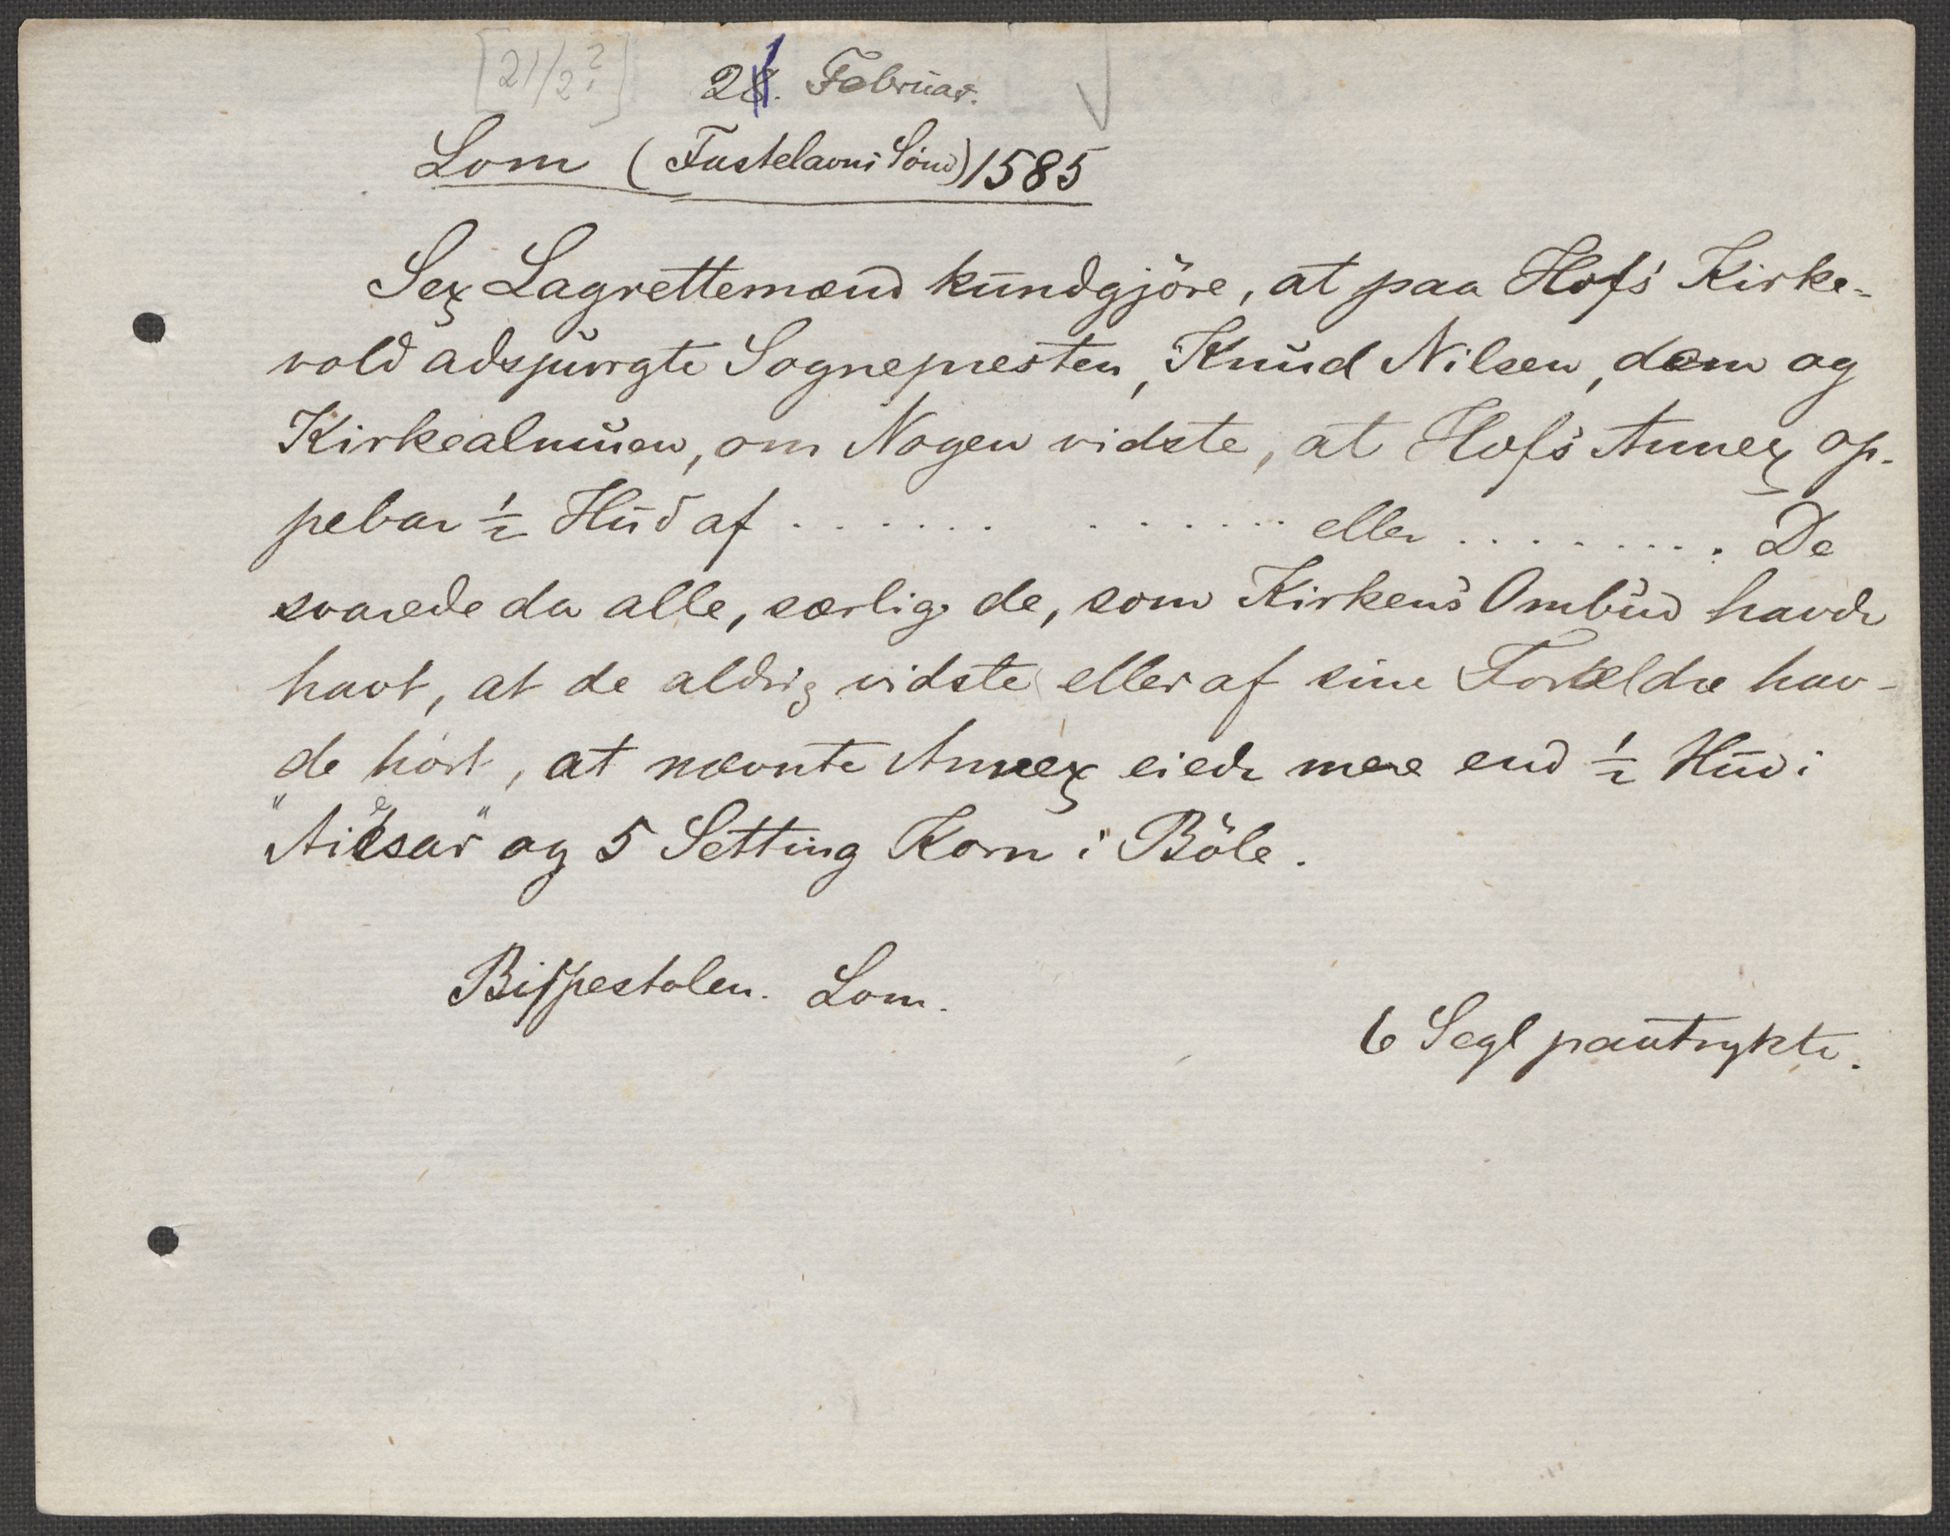 [21/2?]
21. Februar.
Lom (Fastelavns Sönd) 1585
Sex Lagrettemænd kundgjöre, at paa Hofs Kirke-
vold adspurgte Sognepresten, Knud Nilsen, dem og
Kirkealmuen, om Nogen vidste, at Hofs Annex op-
pebar ½ Hud af . . . . . . . . . . . . . eller . . . . . . . . De
svarede da alle, særlig de, som Kirkens Ombud havde
havt, at de aldrig vidste eller af sine Forældre hav-
de hört, at nævnte Annex eiede mere end ½ Hud i
og 5 Setting Korn i Böle.
Bispestolen. Lom.
6 Segl paatrykte.